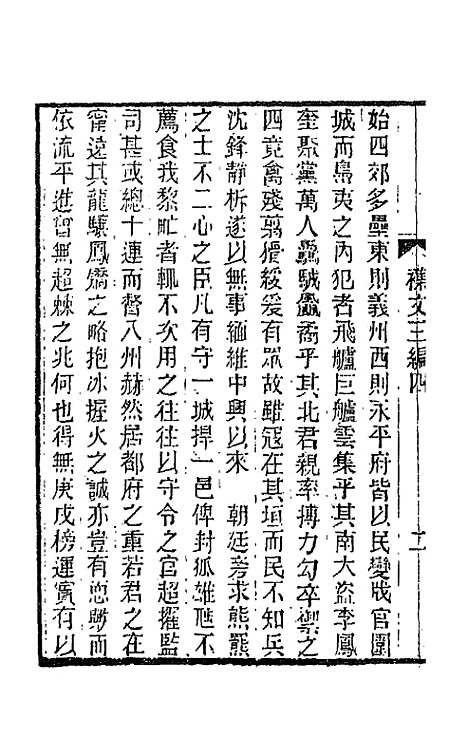 始四郊多壘東則義州西則永平府皆以民變戕官圍
城而島夷之內犯者飛艫巨艫雲集乎其南大盜李鳳
奎聚黨萬人驫駥矞乎其北君親率摶力勾卒禦之
四竟禽殘翦猾綏爰有眾故雖寇在其垣而民不知兵
沈鋒靜柝遂以無事緬維中興以來　朝廷旁求熊羆
之士不二心之臣凡有守一城捍一邑俾封狐雄虺不
薦食我黎甿者輒不次用之往往以守令之官超擢監
司甚或總十連而督八州赫然居都府之重若君之在
甯遠其龍驤鳳矯之略抱冰握火之誠亦豈有愆
依流平進曾無超棘之兆何也得無庚戌榜運實有以
雜文三編四